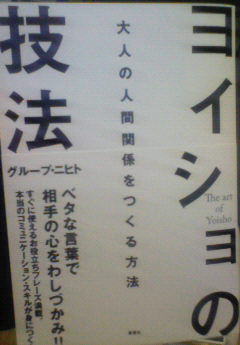 ヨイショの
技法
The art of
Yoisho
大人の人間関係をつくる方法
グループ・ニヒト
ベタな言葉で
相手の心をわしづかみ!!
すぐに使えるお役立ちフレーズ満載。
本当のコミュニケーション・スキルが身につく!